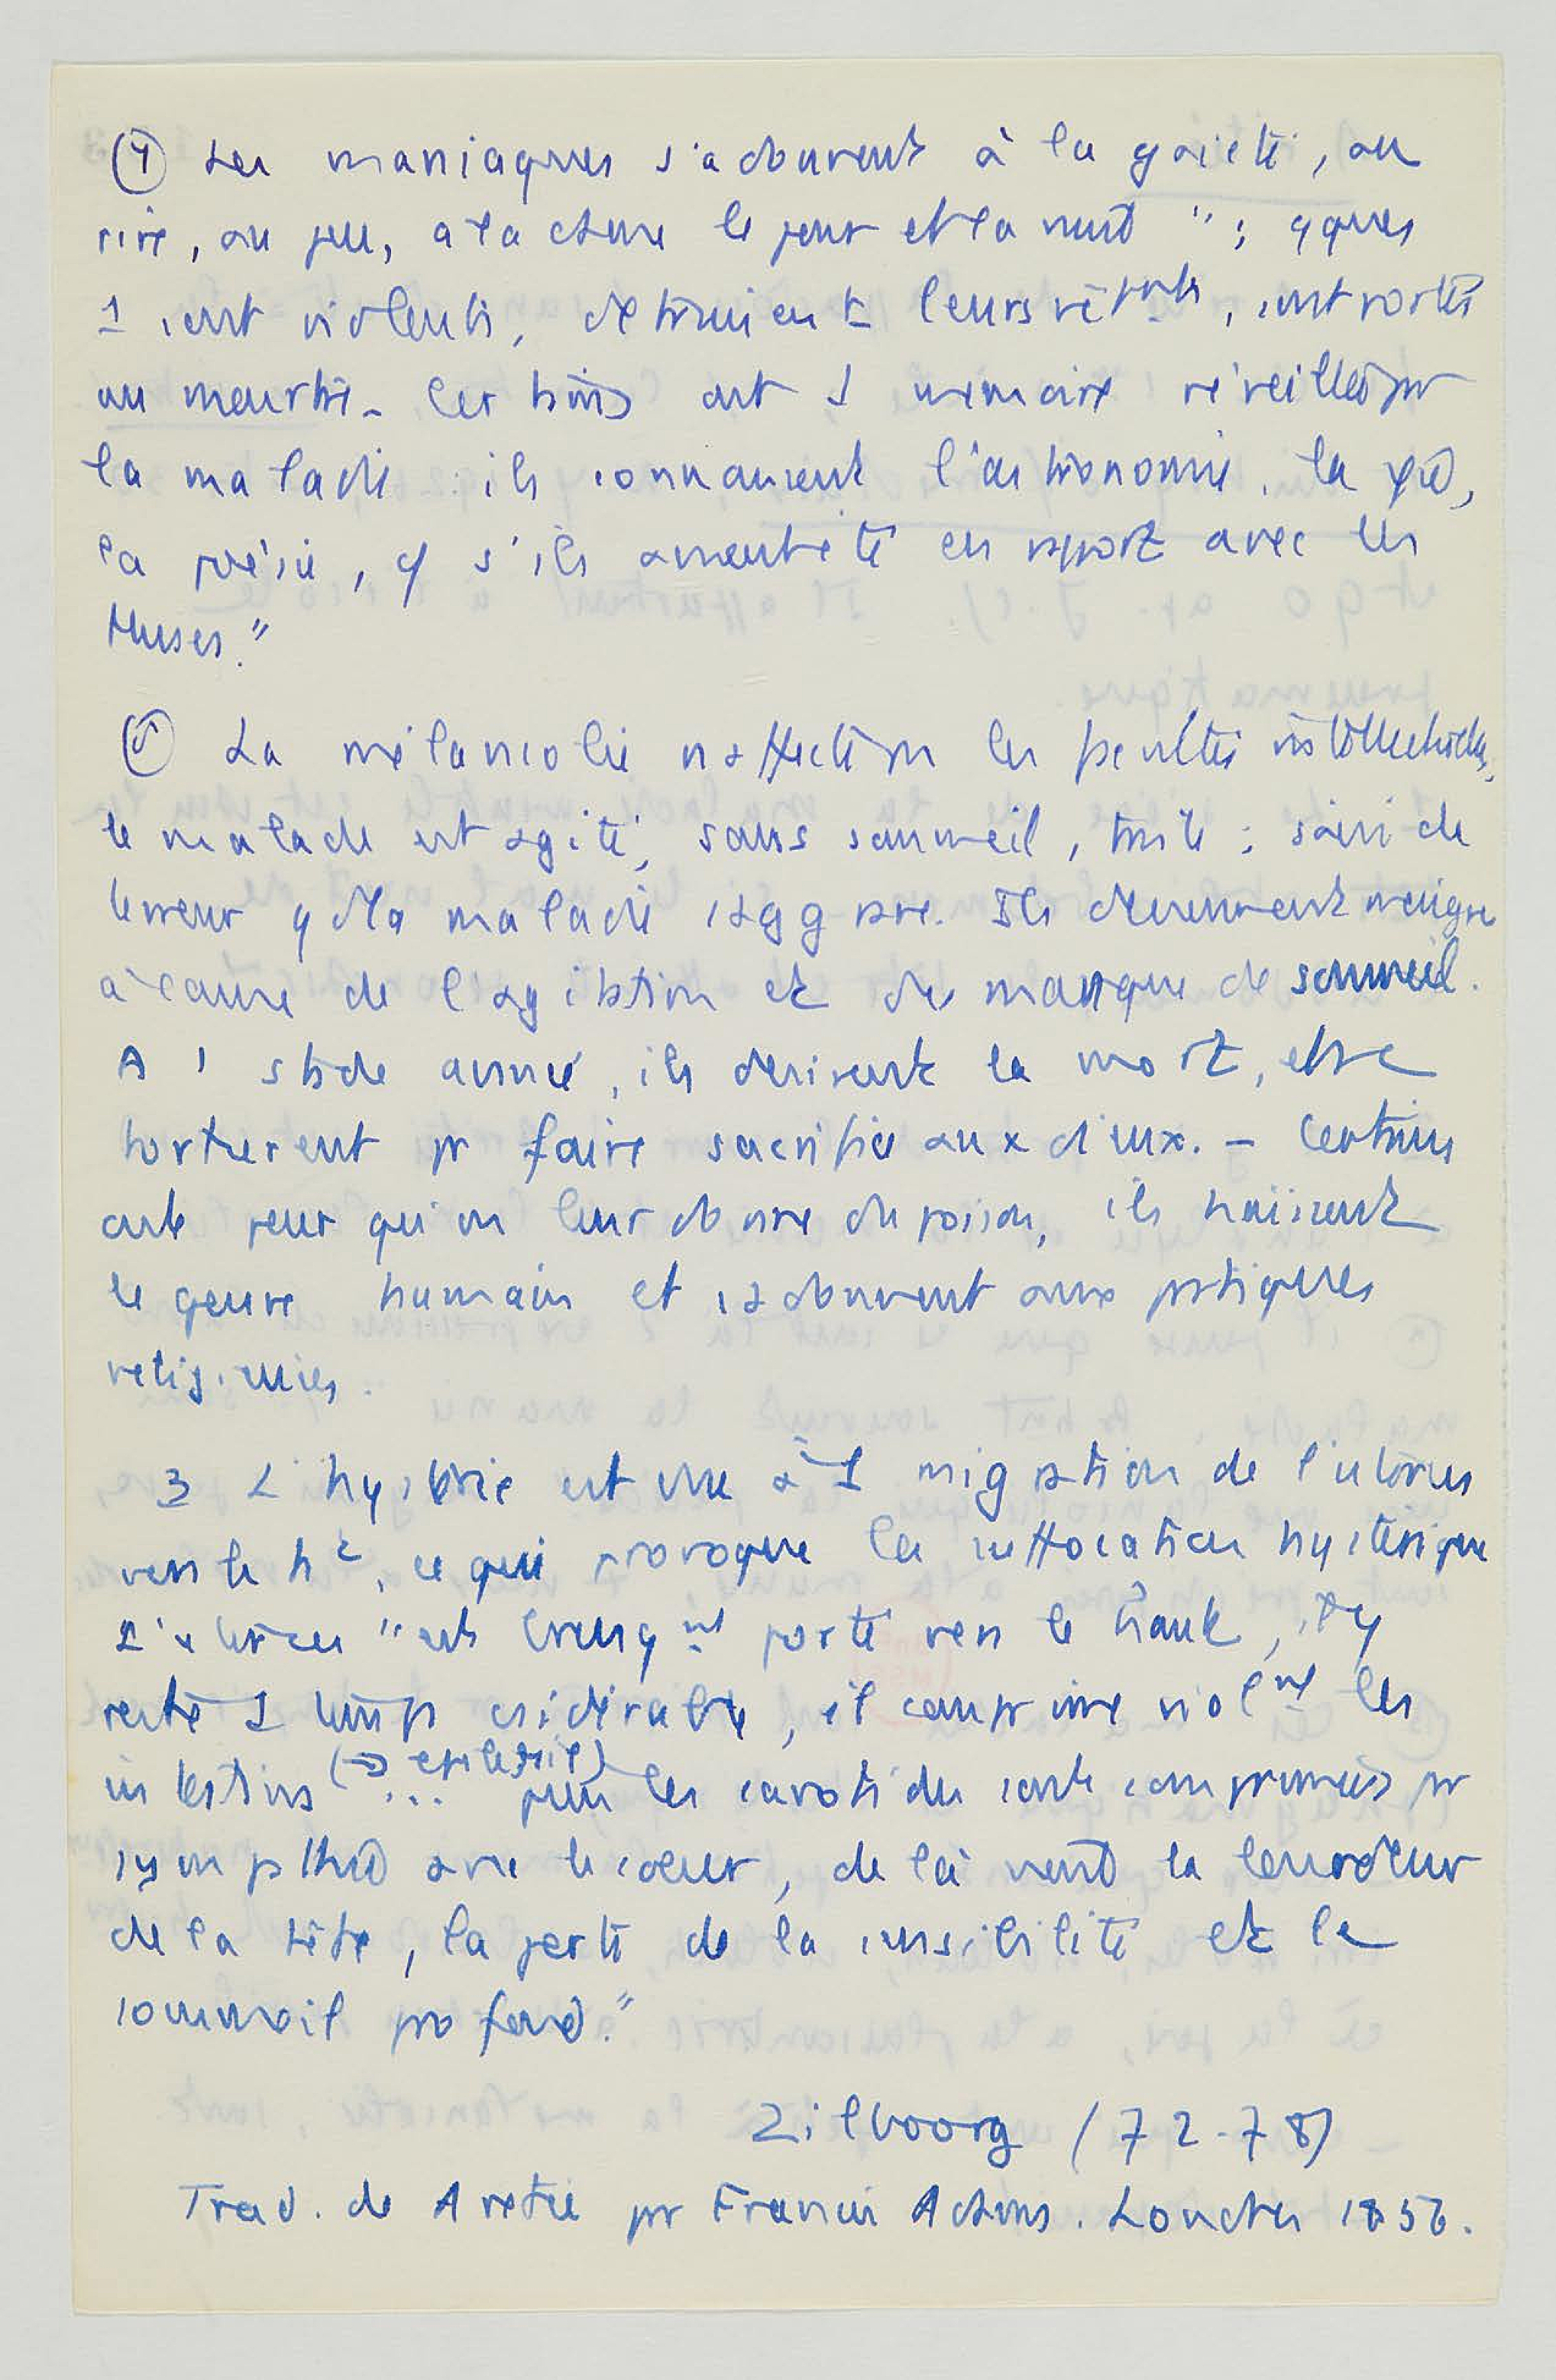 ④ Les maniaques s'adonnent à la gaieté, au
rire, au jeu, à la danse le jour et la nuit " ; qques
1 sont violents, détruisent leurs vêtmts, sont portés
au meurtre. Certains ont 1 mémoire réveillée pr
la maladie : ils connaissent l'astronomie, la φie,
la poésie, cō s'ils avaient été en rapport avec les
Muses."
⑤ La mélancolie n'affecte pas les facultés intellectuelles,
le malade est agité, sans sommeil, triste : saisi de
terreur qd la maladie s'aggrave. Ils deviennent maigres
à cause de l'agitation et du manque de sommeil.
A 1 stade avancé, ils désirent la mort, et se
torturent pr faire sacrifice aux dieux. – Certains
ont peur qu'on leur donne du poison, ils haïssent
le genre humain et s'adonnent aux pratiques
religieuses.
3 L'hystérie est due à 1 migration de l'utérus
vers le ht, ce qui provoque la suffocation hystérique
L'utérus "est brusqnt porté vers le haut, il y
reste 1 temps csidérable, il comprime violnt les
intestins (→ épilepsie) ... puis les carotides sont comprimées pr
sympathie avec le cœur, de là vient la lourdeur
de la tête, la perte de la sensibilité et le
sommeil profond."
Zilboorg (72-78)
Trad. de Arétée pr Francis Adams. Londres 1856.